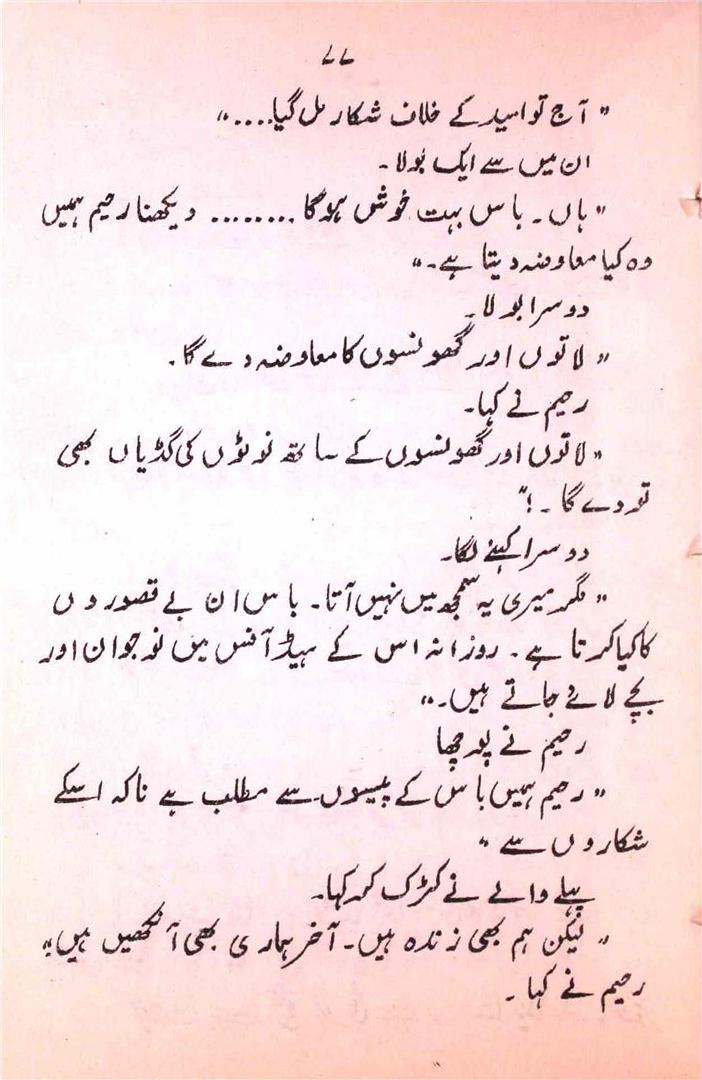 ۷۷
" آج تو امید کے خلاف شکار مل گیا...."
ان میں سے ایک بولا۔
" ہاں۔ باس بہت خوش ہوگا ........ دیکھنا رحیم ہمیں
وہ کیا معاوضہ دیتا ہے۔"
دوسرا بولا۔
" لاتوں اور گھونسوں کا معاوضہ دے گا۔
رحیم نے کہا۔
" لاتوں اور گھونسوں کے ساتھ نوٹوں کی گڈیاں بھی
تو دے گا ۔!"
دوسرا کہنے لگا۔
" مگر میری یہ سمجھ میں نہیں آتا۔ باس ان بے قصوروں
کا کیا کرتا ہے۔ روزانہ اس کے ہیڈ آفس میں نوجوان اور
بچے لائے جاتے ہیں۔"
رحیم نے پوچھا
" رحیم ہمیں باس کے پیسوں سے مطلب ہے ناکہ اسکے
شکاروں سے "
پہلے والے نے کڑک کر کہا۔
" لیکن ہم بھی زندہ ہیں۔ آخر ہماری بھی آنکھیں ہیں"
رحیم نے کہا ۔